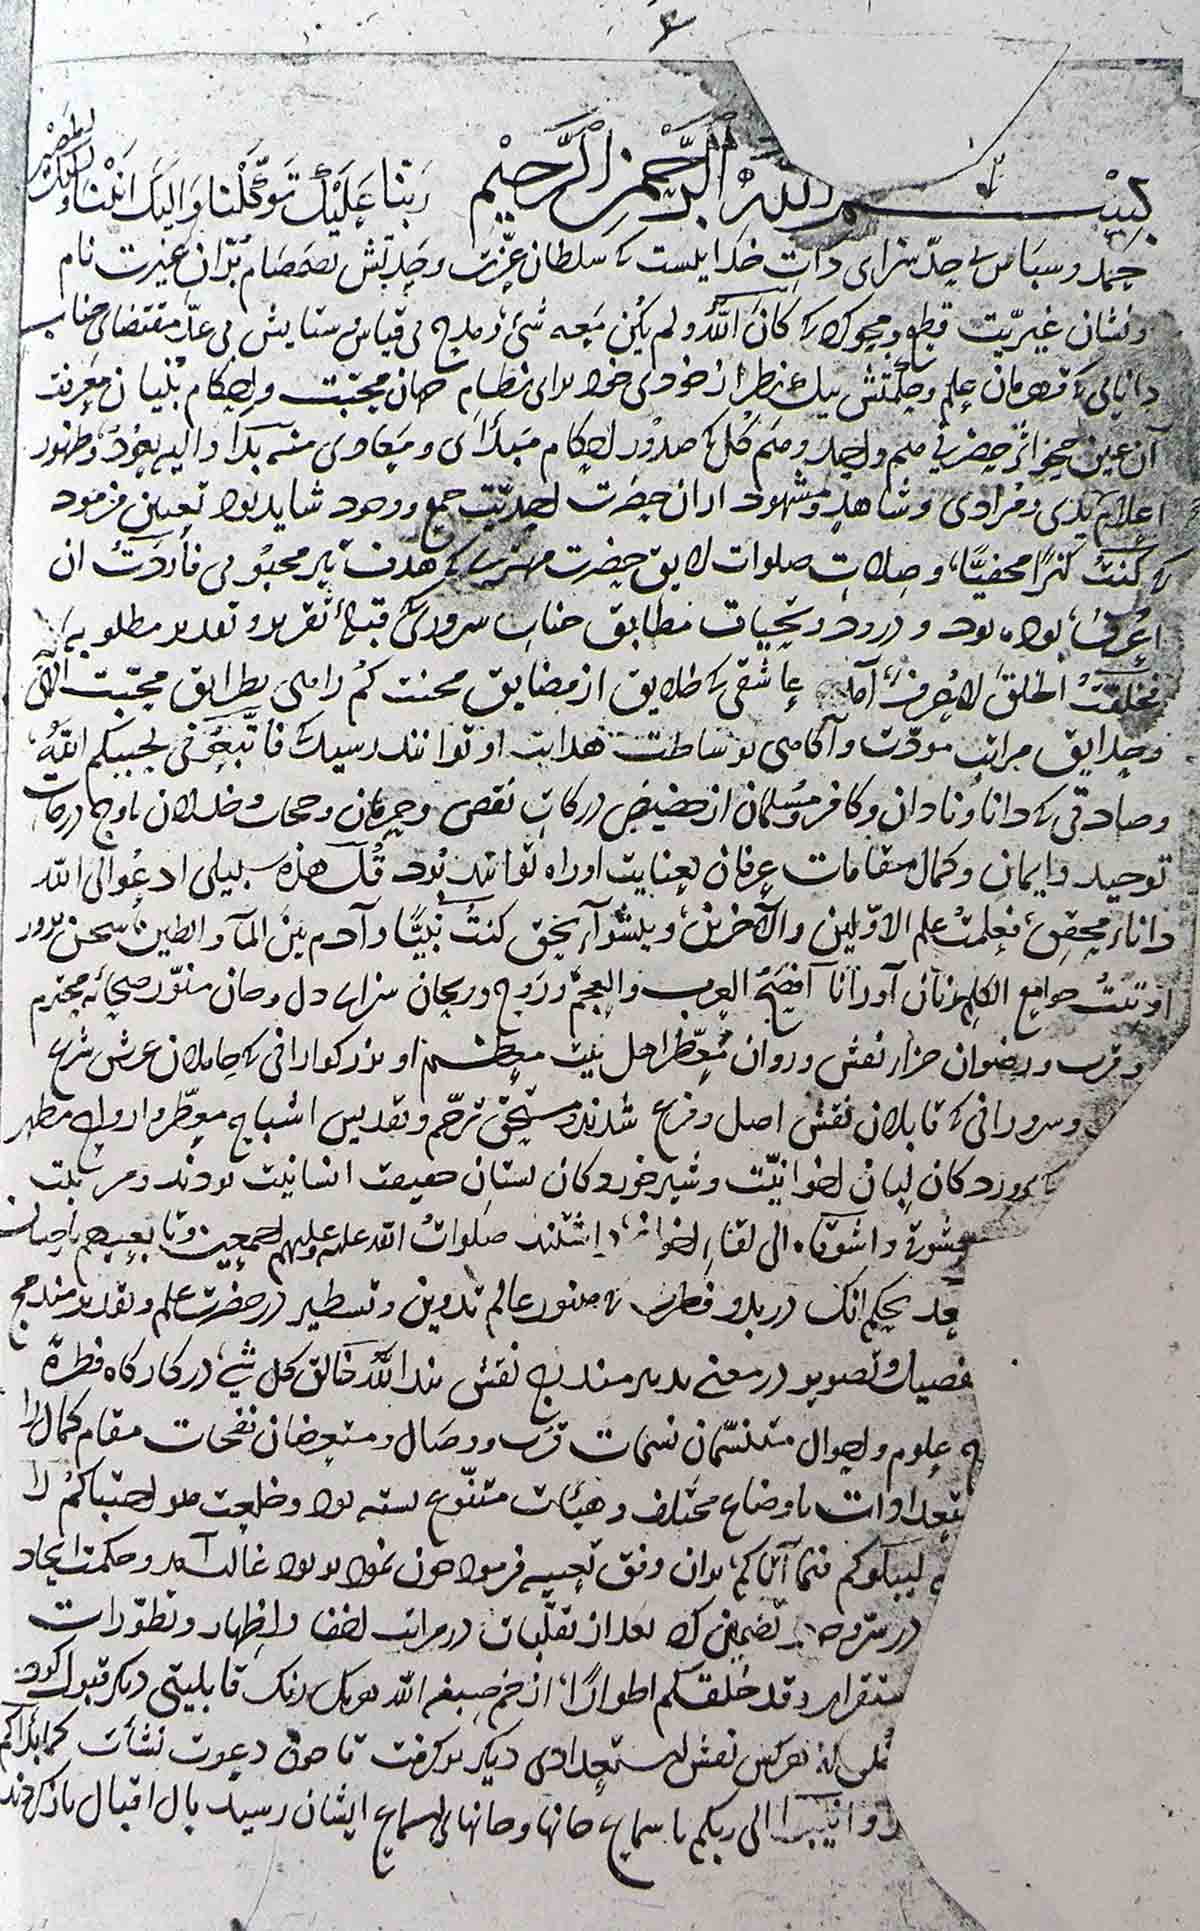 ٢
بسم الله الرحمن الرحیم ربنا علیك توكلنا والیك انبنا والیك المصیر
حمد و سپاس بی حد سزای ذات خدایست که سلطان عزت وحدتش بصمصام بران غیرت نام
ونشان غیریت قطع و محو کرد که کان الله ولم یکن معه شیء و مدح بی قیاس و ستایش بی عد مقتضای جناب
دانایی که قهرمان علم و حکمتش بیك نظر از خودی خود برای نظام جهان محبت و احکام بنیان معرفت
آن عین حضرتی صنم واحد وصنم کل که صدور احکام مبدأی و معادی منه بدأ والیه یعود و ظهور
اعلام بدی و مرادی و شاهد و مشهود ازان حضرت احدیت جمع ووجود شاید بود تعیین فرمود
که کنت کنزا مخفیا، و صلات صلوات لایق حضرت مهتری که هدف تیر محبوبی فأردت ان
اعرف، بوده بود و درود و تحیات مطابق جناب سروری که قبلۀ تقریر و تقدیر مطلوبیه
فخلقت الخلق لاعرف، آمد عاشقی که خلایق از مضایق محنت کم راهی بطرایق محبت الهی
وحدایق مراتب مودت و آگاهی بوساطت هدایت او توانند رسید که فاتبعونی یحببکم الله
وصادقی که دانا و نادان و کافر و مسلمان از حضیض درکات نقص و حرمان و خذلان باوج درجات
توحید و ایمان و کمال مقامات عرفان بعنایت او راه توانند بود قل هذه سبیلی ادعوا الی الله
داناء محقق، فعلمت علم الاولین والآخرین، و پیشوآء بحق کنت نبیا و آدم بین المآء والطین، سخن پرور
اوتیت جوامع الکلم زبان آور انا افصح العرب والعجم و روح و ریحان سزاء دل و جان منور صحابۀ محترم
و قرب و رضوان هزار نقش و روان معطر اهل بیت معظم او بزرگوارانی که حاملان عرش شرع
و سرورانی که قابلان نقش اصل و فرع شدند و مستحق ترحم و تقدیس اشباح معطر و ارواح مطهر
پروردگان لبان اخوانیت و شیر خوردگان پستان حقیقت انسانیت بودند و مرتبت
واشوقاه الی لقاء اخوانی، داشتند صلوات الله علیه و علیهم اجمعین وتابعیهم باحسان
بعد بحکم انك در بدو فطرت که صنور عالم تدوین و تسطیر در حضرت علم و تقدیر مندمج
تصویر در معنی تدبیر مندرج نقش بند الله خالق کل شیء، در کارگاه فطرة
علوم و احوال متنسمان نسمات قرب و وصال و متعرضان نفحات مقام کمال را
باوضاع مختلف و هیئات متنوع بسته بود و خلعت هو اجتباکم را
لیبلوکم فیما آتاکم، بران وفق تعبیه فرمود چون غالب آمد و حکمت ایجاد
تضمین کرد بعد از تقلبات در مراتب اخفا و اظهار و تطورات
استقرار وقد خلقکم اطوارا، از خم صبغة الله هر یك رنگ قابلیتی دیگر قبول کرد
هر کس نقش استعدادی دیگر بر گرفت تا چون دعوت نشأت کما بدأکم
و انیبوا الی ربکم باسماع جانها و جانهاء اسماع ایشان رسید بال اقبال باز کردند